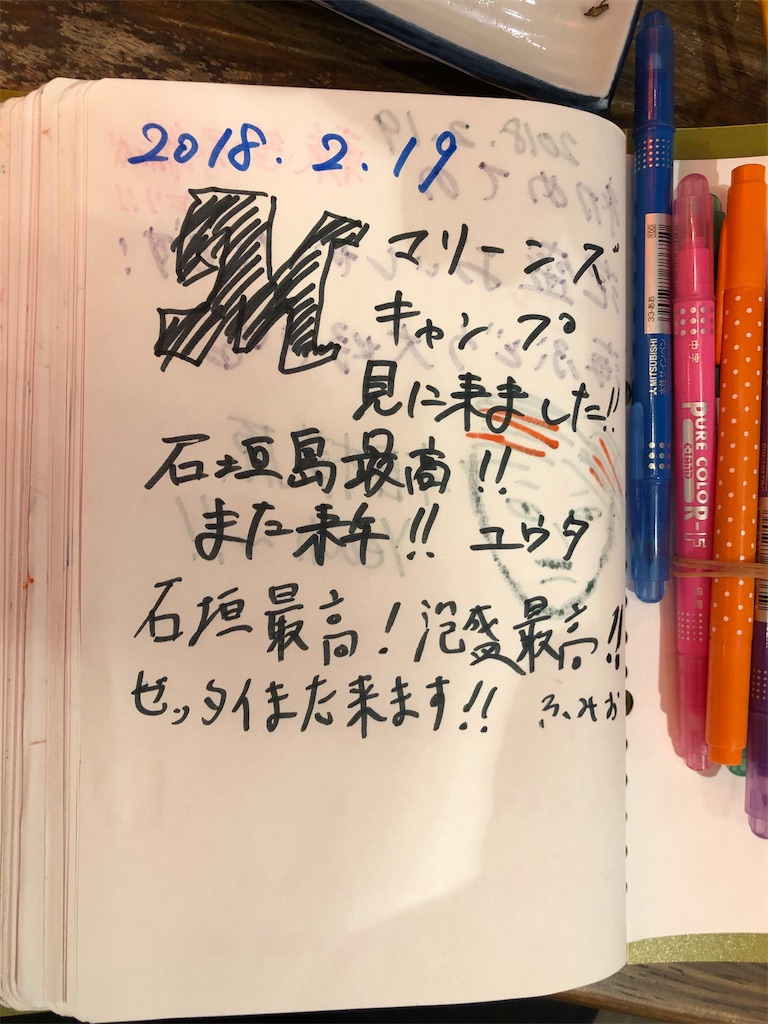 2018. 2. 19
M マリーンズ
キャンプ
見に来ました!!
石垣島最高!!
また来年!! ユウタ
石垣最高! 泡盛最高!!
ゼッタイまた来ます!! ふみお
33-あお
MITSUBISHI
中字
PURE COLOR-F